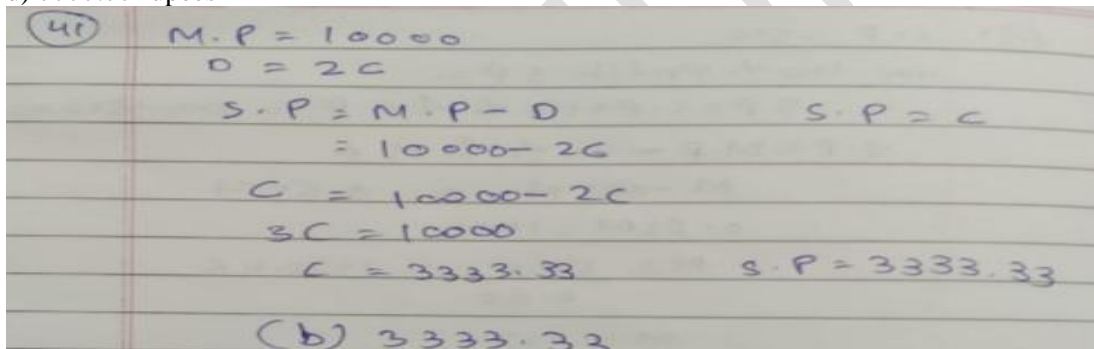 41 M.P = 10000
D = 2C
S.P = M.P - D S.P = C
= 10000 - 2C
C = 10000 - 2C
3C = 10000
C = 3333.33 S.P = 3333.33
(b) 3333.33